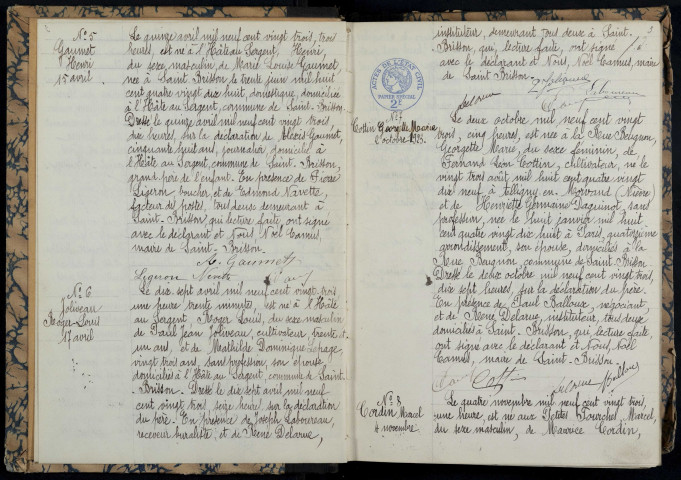 N° 5
Gaumet
Henri
15 avril
Le quinze avril mil neuf cent vingt trois, trois
heures, est né à l'Hâte au Sergent, Henri,
du sexe masculin, de Marie Louise Gaumet,
née à Saint Brisson le trente juin mil huit
cent quatre vingt dix huit, domestique, domiciliée
à l'Hâte au Sergent, commune de Saint-Brisson.
Dressé le quinze avril mil neuf cent vingt trois,
dix heures, sur la déclaration de Alexis Gaumet,
cinquante huit ans, journalier, domicilié à
l'Hâte au Sergent, commune de Saint-Brisson,
grand-père de l'enfant. En présence de Pierre
Ligeron boucher, et de Edmond Navette,
facteur des postes, tous deux demeurant à
Saint-Brisson, qui lecture faite, ont signé
avec le déclarant et Nous, Noël Camus,
maire de Saint-Brisson.
A. Gaumet
Ligeron
N° 6
Joliveau
Roger Louis
17 avril
Le dix sept avril mil neuf cent vingt trois
une heure trente minutes, est né à l'Hâte
au Sergent Roger Louis, du sexe masculin
de Paul Jean Joliveau, cultivateur, trente et
un ans, et de Mathilde Dominique Lepage,
vingt trois ans, sans profession, son épouse
domiciliés à l'Hâte au Sergent, commune de Saint-
Brisson. Dressé le dix sept avril mil neuf
cent vingt trois, seize heures, sur la déclaration
du père. En présence de Joseph
receveur buraliste, et de René Delarue,
3
instituteur, demeurant tous deux à Saint-
Brisson, qui, lecture faite, ont signé
avec le déclarant et Nous, Noël Camus, maire
de Saint Brisson.
ACTES DE L'ETAT CIVIL
PAPIER SPECIAL
2F
N° 7
Cottin Georgette Marie
2 octobre 1923
Le deux octobre mil neuf cent vingt
trois, cinq heures, est née à la Rue Baugnon,
Georgette Marie, du sexe féminin, de
Fernand Léon Cottin, cultivateur, né le
vingt trois août mil huit cent quatre vingt
dix neuf à en Morvand Nièvre
et de Henriette Germaine Daguinot, sans
profession, née le huit janvier mil huit
cent quatre vingt dix huit à Paris, quatorzième
arrondissement, son épouse, domiciliés à la
Rue Baugnon, commune de Saint Brisson
Dressé le deux octobre mil neuf cent vingt trois,
dix sept heures, sur la déclaration du père.
En présence de Paul Balloux, négociant,
et de René Delarue, instituteur, tous deux
domiciliés à Saint-Brisson, qui lecture faite,
ont signé avec le déclarant et Nous, Noël
Camus, maire de Saint-Brisson.
N° 8
Cordin Marcel
4 novembre
Le quatre novembre mil neuf cent vingt trois,
une heure, est né aux Petits Fourchet Marcel,
du sexe masculin, de Maurice Cordin,